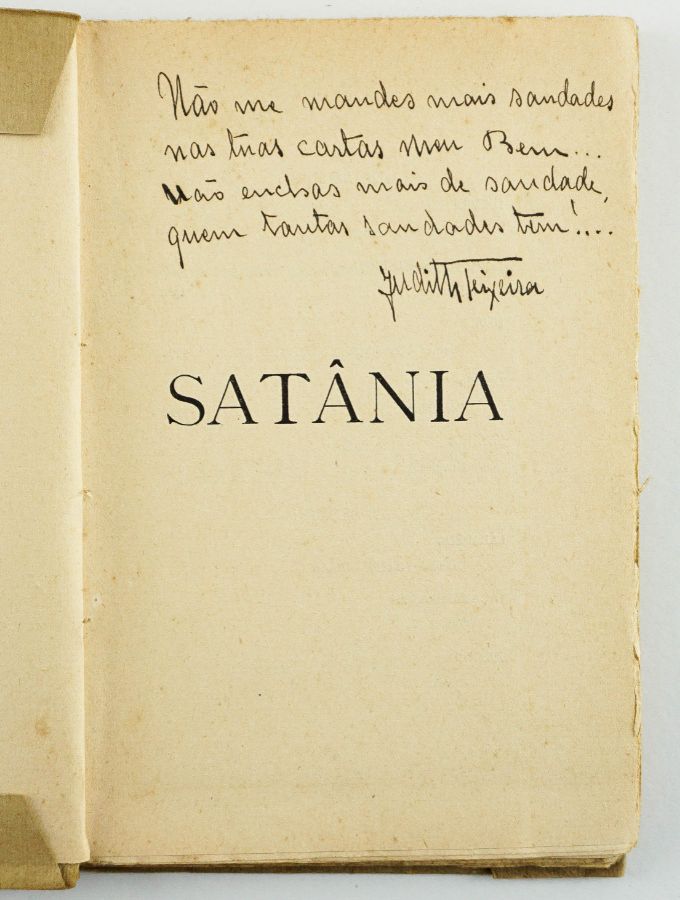 Não me mandes mais saudades
nas tuas cartas meu Bem...
não enchas mais de saudade,
quem tantas saudades tem!....
Judith Teixeira
SATÂNIA